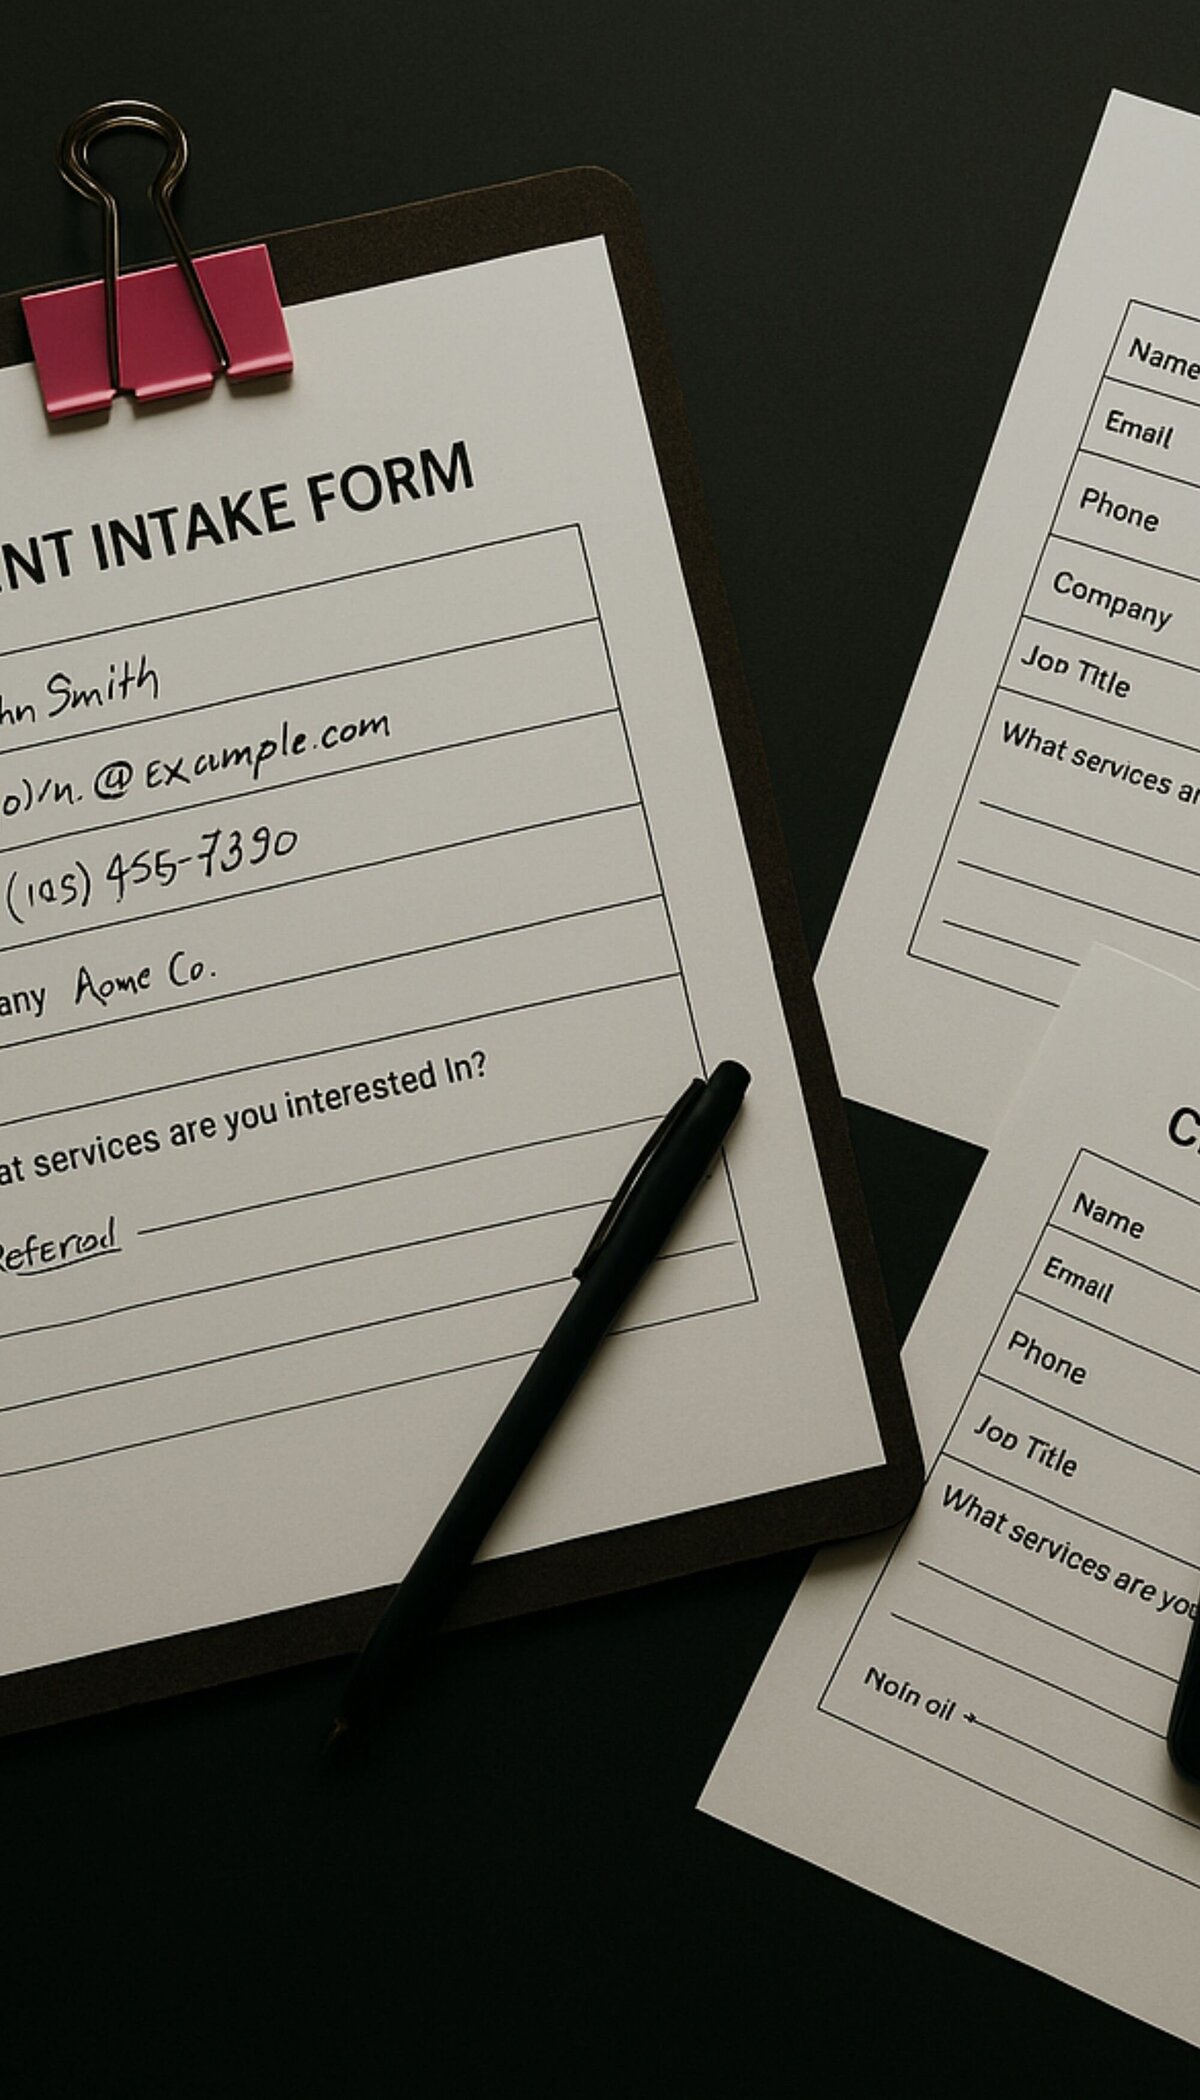 NT INTAKE FORM
hn Smith
o)/n. @ Example.com
(105) 455-7390
any Aome Co.
at services are you interested In?
Referiod
Name
Email
Phone
Company
Job Title
What services ar
C
Name
Email
Phone
Job Title
What services are you
Noln oil